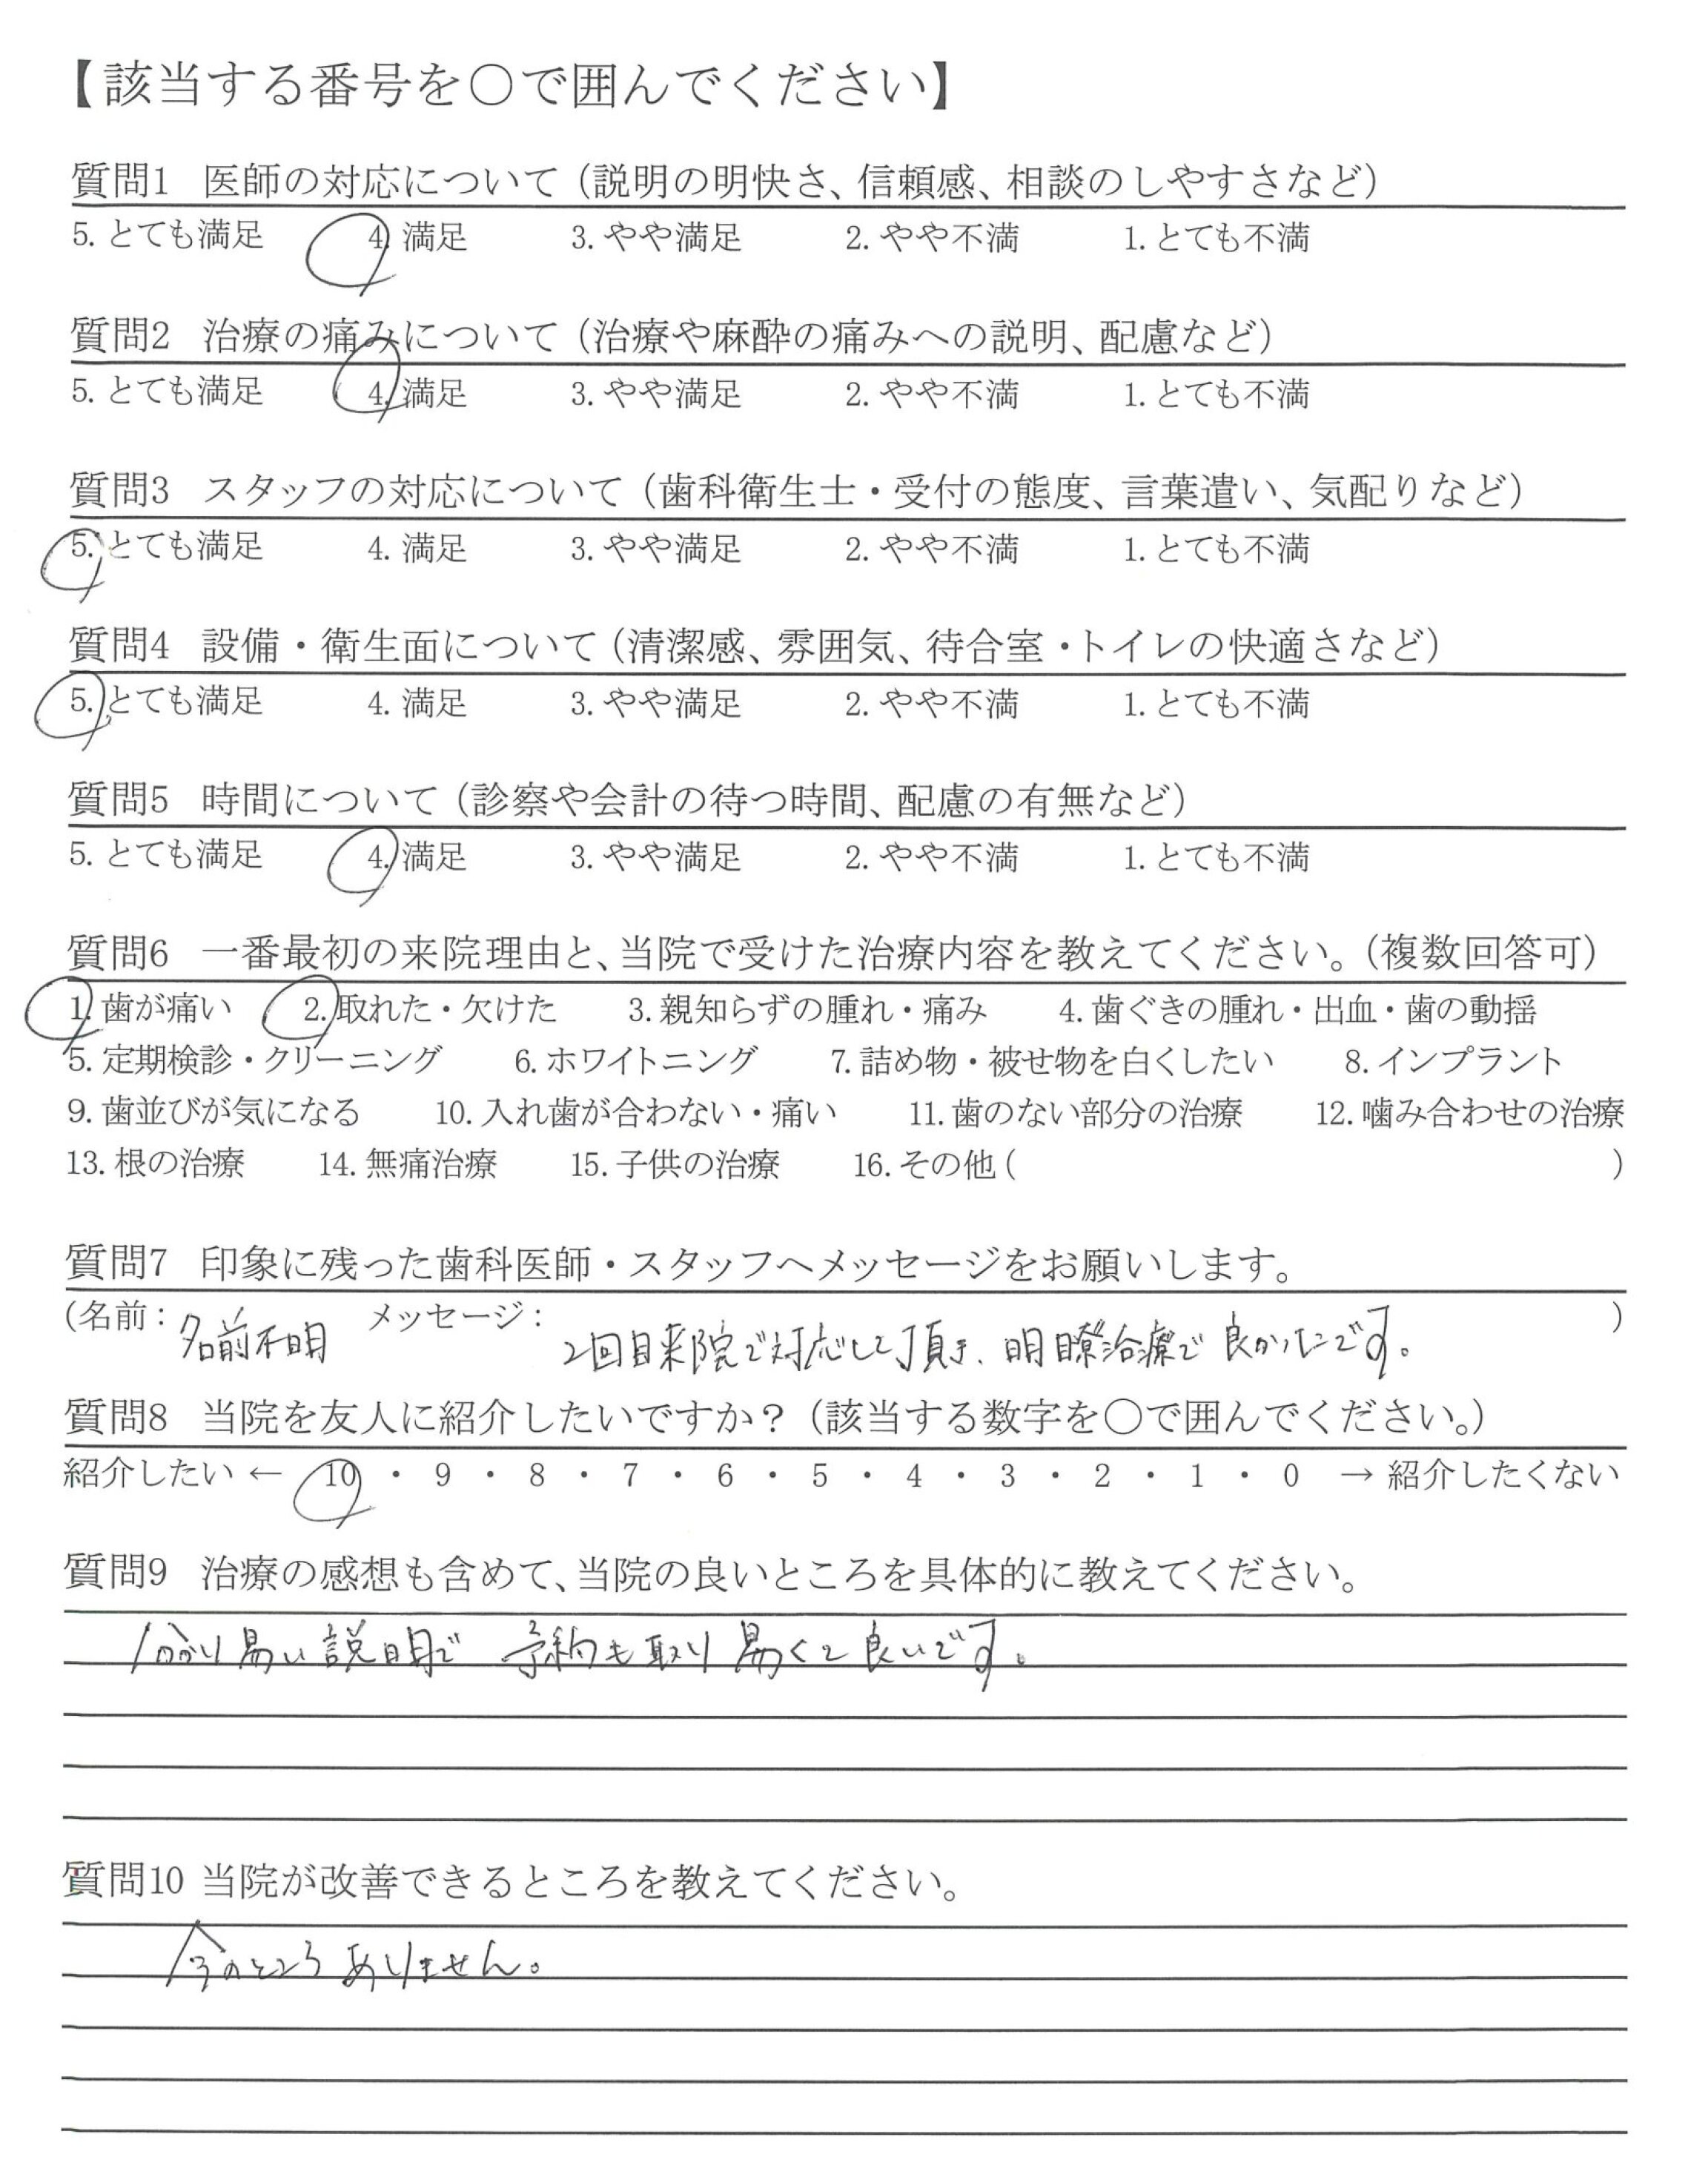 【該当する番号を○で囲んでください】
質問1 医師の対応について（説明の明快さ、信頼感、相談のしやすさなど）
5. とても満足 4. 満足 3. やや満足 2. やや不満 1. とても不満
質問2 治療の痛みについて（治療や麻酔の痛みへの説明、配慮など）
5. とても満足 4. 満足 3. やや満足 2. やや不満 1. とても不満
質問3 スタッフの対応について（歯科衛生士・受付の態度、言葉遣い、気配りなど）
5. とても満足 4. 満足 3. やや満足 2. やや不満 1. とても不満
質問4 設備・衛生面について（清潔感、雰囲気、待合室・トイレの快適さなど）
5. とても満足 4. 満足 3. やや満足 2. やや不満 1. とても不満
質問5 時間について（診察や会計の待つ時間、配慮の有無など）
5. とても満足 4. 満足 3. やや満足 2. やや不満 1. とても不満
質問6 一番最初の来院理由と、当院で受けた治療内容を教えてください。（複数回答可）
1. 歯が痛い 2. 取れた・欠けた 3. 親知らずの腫れ・痛み 4. 歯ぐきの腫れ・出血・歯の動揺
5. 定期検診・クリーニング 6. ホワイトニング 7. 詰め物・被せ物を白くしたい 8. インプラント
9. 歯並びが気になる 10. 入れ歯が合わない・痛い 11. 歯のない部分の治療 12. 噛み合わせの治療
13. 根の治療 14. 無痛治療 15. 子供の治療 16. その他（ ）
質問7 印象に残った歯科医師・スタッフへメッセージをお願いします。
（名前：名前不明 メッセージ：2回目来院で対応して頂き、明瞭治療で良かったです。）
質問8 当院を友人に紹介したいですか？（該当する数字を○で囲んでください。）
紹介したい ← 10 ・ 9 ・ 8 ・ 7 ・ 6 ・ 5 ・ 4 ・ 3 ・ 2 ・ 1 ・ 0 → 紹介したくない
質問9 治療の感想も含めて、当院の良いところを具体的に教えてください。
分かり易い説明で 予約も取り易くて良いです。
質問10 当院が改善できるところを教えてください。
今のところありません。